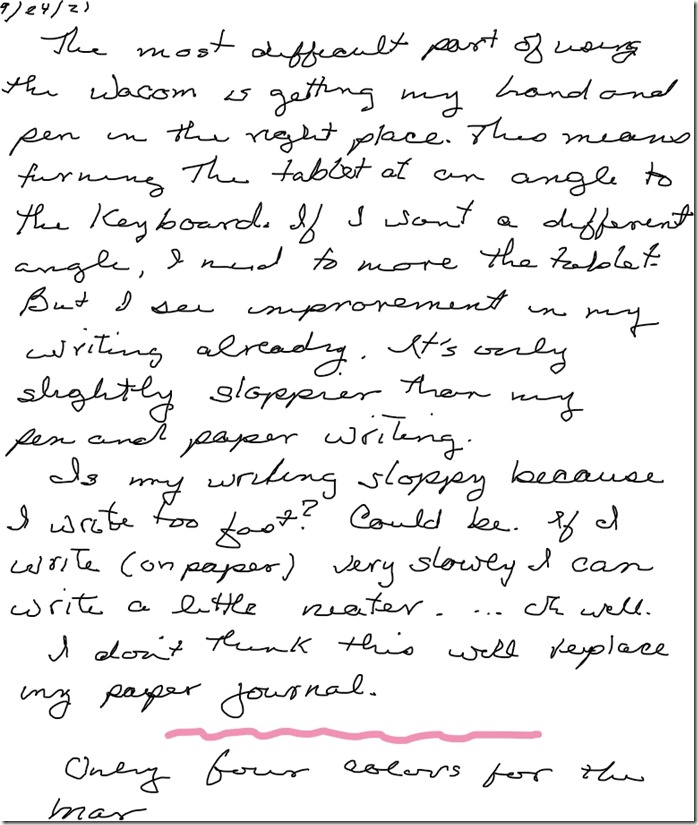 9/24/21
The most difficult part of using
the Wacom is getting my hand and
pen in the right place. This means
turning The tablet at an angle to
the Keyboard. If I want a different
angle, I need to move the tablet.
But I see improvement in my
writing already. It's only
slightly sloppier than my
pen and paper writing.
Is my writing sloppy because
I write too fast? Could be. If I
write (on paper) very slowly I can
write a little neater. ... Oh well.
I don't think this will replace
my paper journal.
Only four colors for the
mar